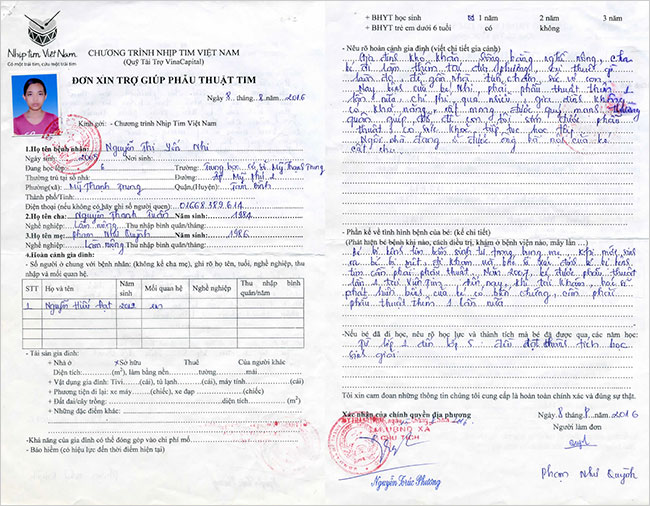 Nhịp tim Việt Nam
Có một trái tim, cứu một trái tim
CHƯƠNG TRÌNH NHỊP TIM VIỆT NAM
(Quỹ Tài Trợ VinaCapital)
ĐƠN XIN TRỢ GIÚP PHẪU THUẬT TIM
Ngày 8 tháng 8 năm 2016
Kính gởi: - Chương trình Nhịp Tim Việt Nam
1.Họ tên bệnh nhân: Nguyễn Thị Yến Nhi
Ngày sinh: 2005 Nơi sinh:
Đang học lớp: 6 Trường: Trung học cơ sở Mỹ Thạnh Trung
Thường trú tại số nhà: Đường: ấp Mỹ Phú 1
Phường(xã) Mỹ Thạnh Trung Quận,(Huyện): Tam Bình
Thành phố/Tỉnh:
Điện thoại (nếu không có hãy ghi số người quen): 01668.389.614
2.Họ tên cha: Nguyễn Thanh Tuấn Năm sinh: 1984
Nghề nghiệp: Làm nông Thu nhập bình quân/năm:
3.Họ tên mẹ: Phạm Như Quỳnh Năm sinh: 1986
Nghề nghiệp: Làm nông Thu nhập bình quân/năm:
4.Hoàn cảnh gia đình:
- Số người ở chung với bệnh nhân: (không kể cha mẹ), ghi rõ họ tên, tuổi, nghề nghiệp, thu nhập và mối quan hệ.
STT Họ và tên Năm sinh Mối quan hệ Nghề nghiệp Thu nhập bình quân/năm
1 Nguyễn Hữu Đạt em
- Tài sản gia đình:
+ Nhà ở Sở hữu Thuê Của người khác
Diện tích: (m²), làm bằng nền tường mái
+ Vật dụng gia đình: Tivi (cái), tủ lạnh (cái), máy tính (cái)
+ Phương tiện đi lại: xe máy (chiếc), xe đạp (chiếc)
+ Đất đai/cây trồng: diện tích (m²)
+ Những đặc điểm khác:
-Khả năng của gia đình có thể đóng góp vào chi phí mổ
- Bảo hiểm (có hiệu lực đến thời điểm hiện tại)
+ BHYT học sinh 1 năm 2 năm 3 năm
+ BHYT trẻ em dưới 6 tuổi có không
- Nêu rõ hoàn cảnh gia đình (viết chi tiết gia cảnh)
Gia đình khó khăn, sống bằng nghề nông, cha
đi làm thêm tại địa phương,
làm đó, để gần nhà tiện chăm sóc vợ con.
Nay bệnh của bé Nhi phải phẫu thuật thêm 1
lần nữa, chi phí quá nhiều, gia đình không
có khả năng, rất mong được quý mạnh thường
quân giúp đỡ để con tôi sớm được phẫu
thuật, có sức khỏe tiếp tục học tập.
Ngôi nhà đang ở được ông bà nội của bé
cất cho.
- Phần kể về tình hình bệnh của bé: (kể chi tiết)
(Phát hiện bé bệnh khi nào, cách điều trị, khám ở bệnh viện nào, mấy lần …)
Bé bị bệnh tim bẩm sinh từ trong bụng mẹ, khi mới sinh
ra bé bị mệt, đi khám
tim cần phải phẫu thuật. Năm 2007, bé được phẫu thuật
lần 1 tại Viện Tim, đến nay, khi tái khám, bác sĩ
phát hiện bệnh của bé có biến chứng, cần phải
phẫu thuật thêm 1 lần nữa
-Nếu bé đã đi học, nêu rõ học lực và thành tích mà bé đã được qua các năm học:
Từ lớp 1 đến lớp 5: đều đạt thành tích học
sinh giỏi
Tôi xin cam đoan những thông tin chúng tôi cung cấp là hoàn toàn chính xác và đúng sự thật.
Xác nhận của chính quyền địa phương Ngày 8 tháng 8 năm 2016
Người làm đơn
TM.UBND XÃ
CHỦ TỊCH
Nguyễn Trúc Phương
Phạm Như Quỳnh